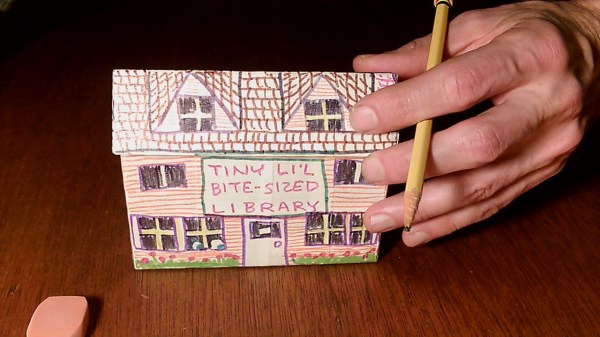 TINY LI'L
BITE-SIZED
LIBRARY